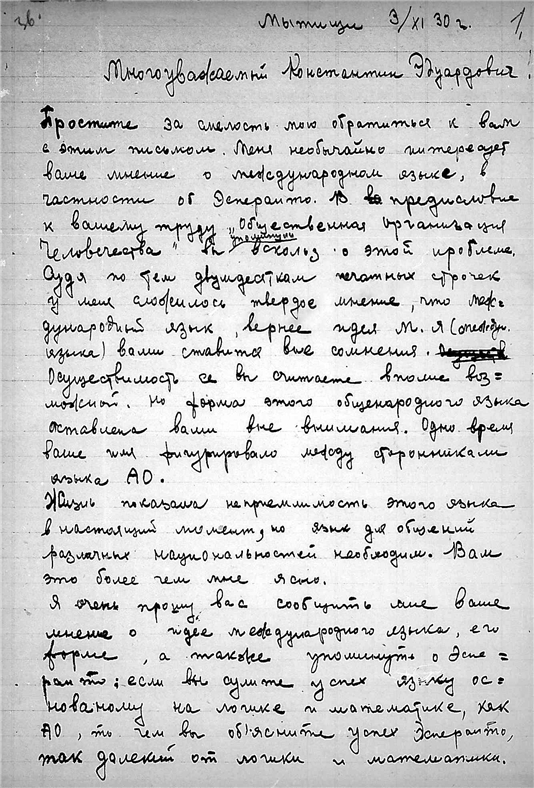 36.
Мытищи 3/XI 30 г. 1,
Многоуважаемый Константин Эдуардович!
Простите за смелость мою обратиться к вам
с этим письмом. Меня необычайно интересует
ваше мнение о международном языке, в
частности об Эсперанто. В предисловие
к вашему труду „Общественная организация
упомянули
Человечества" вы вскользь о этой проблеме.
Судя по тем двум десткам печатных строчек
у меня сложилось твердое мнение, что меж-
дународный язык, вернее идея М. Я (международн.
языка) вами ставится вне сомнения.
Осуществимость ее вы считаете вполне воз=
можной. Но форма этого общенародного языка
оставлена вами вне внимания. Одно время
ваше имя фигурировало между сторонниками
языка АО.
Жизнь показала неприемлимость этого языка
в настоящий момент, но язык для общений
различных национальностей необходим. Вам
это более чем мне ясно.
Я очень прошу вас сообщить мне ваше
мнение о идее международного языка, его
форме, а также упомянуть о Эспе=
ранто; если вы сулите успех языку ос=
нованому на логике и математике, как
АО, то чем вы об'ясните успех Эсперанто,
так далекий от логики и математики.